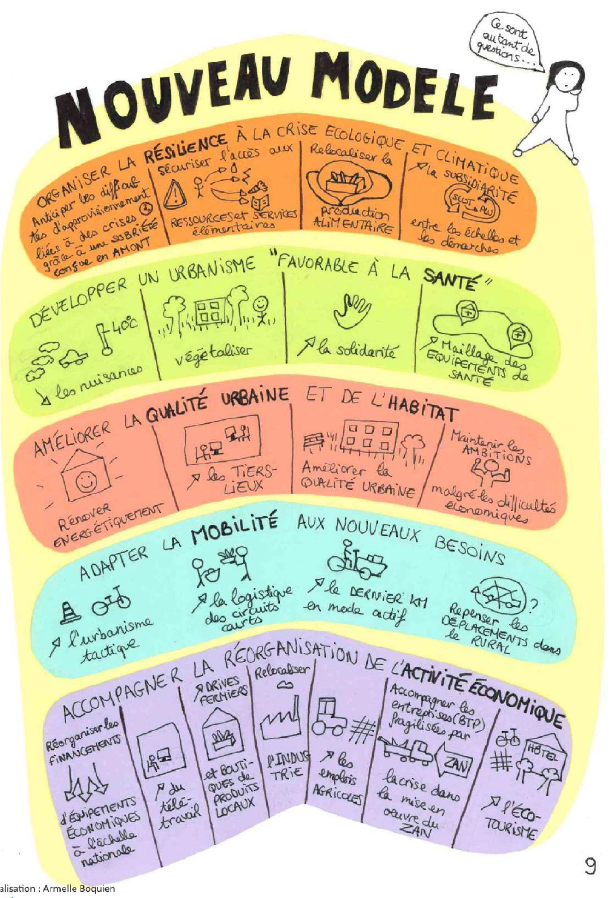 Ce sont
autant de
questions...
NOUVEAU MODELE
ORGANISER LA RÉSILIENCE À LA CRISE ECOLOGIQUE ET CLIMATIQUE
Anticiper les difficul-
tés d'approvisionnement
liées à des crises
grâce à une SOBRIÉTÉ
conçue en AMONT
Sécuriser l'accès aux
RESSOURCES et SERVICES
élémentaires
Relocaliser la
production
ALIMENTAIRE
↗ la SUBSIDIARITÉ
SCOT
PLU
entre les échelles et
les démarches
DÉVELOPPER UN URBANISME "FAVORABLE À LA SANTÉ"
40°C
↘ les nuisances
végétaliser
↗ la solidarité
↗ Maillage des
EQUIPEMENTS de
SANTÉ
AMÉLIORER LA QUALITÉ URBAINE ET DE L'HABITAT
Rénover
ENERGÉTIQUEMENT
↗ les TIERS-
LIEUX
Améliorer la
QUALITÉ URBAINE
Maintenir les
AMBITIONS
malgré les difficultés
économiques
ADAPTER LA MOBILITÉ AUX NOUVEAUX BESOINS
↗ l'urbanisme
tactique
↗ la logistique
des circuits
courts
↗ le DERNIER KM
en mode actif
?
Repenser les
DÉPLACEMENTS dans
le RURAL
ACCOMPAGNER LA RÉORGANISATION DE L'ACTIVITÉ ÉCONOMIQUE
Réorganiser les
FINANCEMENTS
d'ÉQUIPEMENTS
ÉCONOMIQUES
à l'échelle
nationale
↗ du
télé-
travail
↗ DRIVES
FERMIERS
et BOUTI-
QUES de
PRODUITS
LOCAUX
Relocaliser
l'INDUS
TRIE
↗ les
emplois
AGRICOLES
Accompagner les
entreprises (BTP)
fragilisées par
ZAN
la crise dans
la mise en
oeuvre du
ZAN
HÔTEL
↗ l'ÉCO-
TOURISME
9
alisation : Armelle Boquien